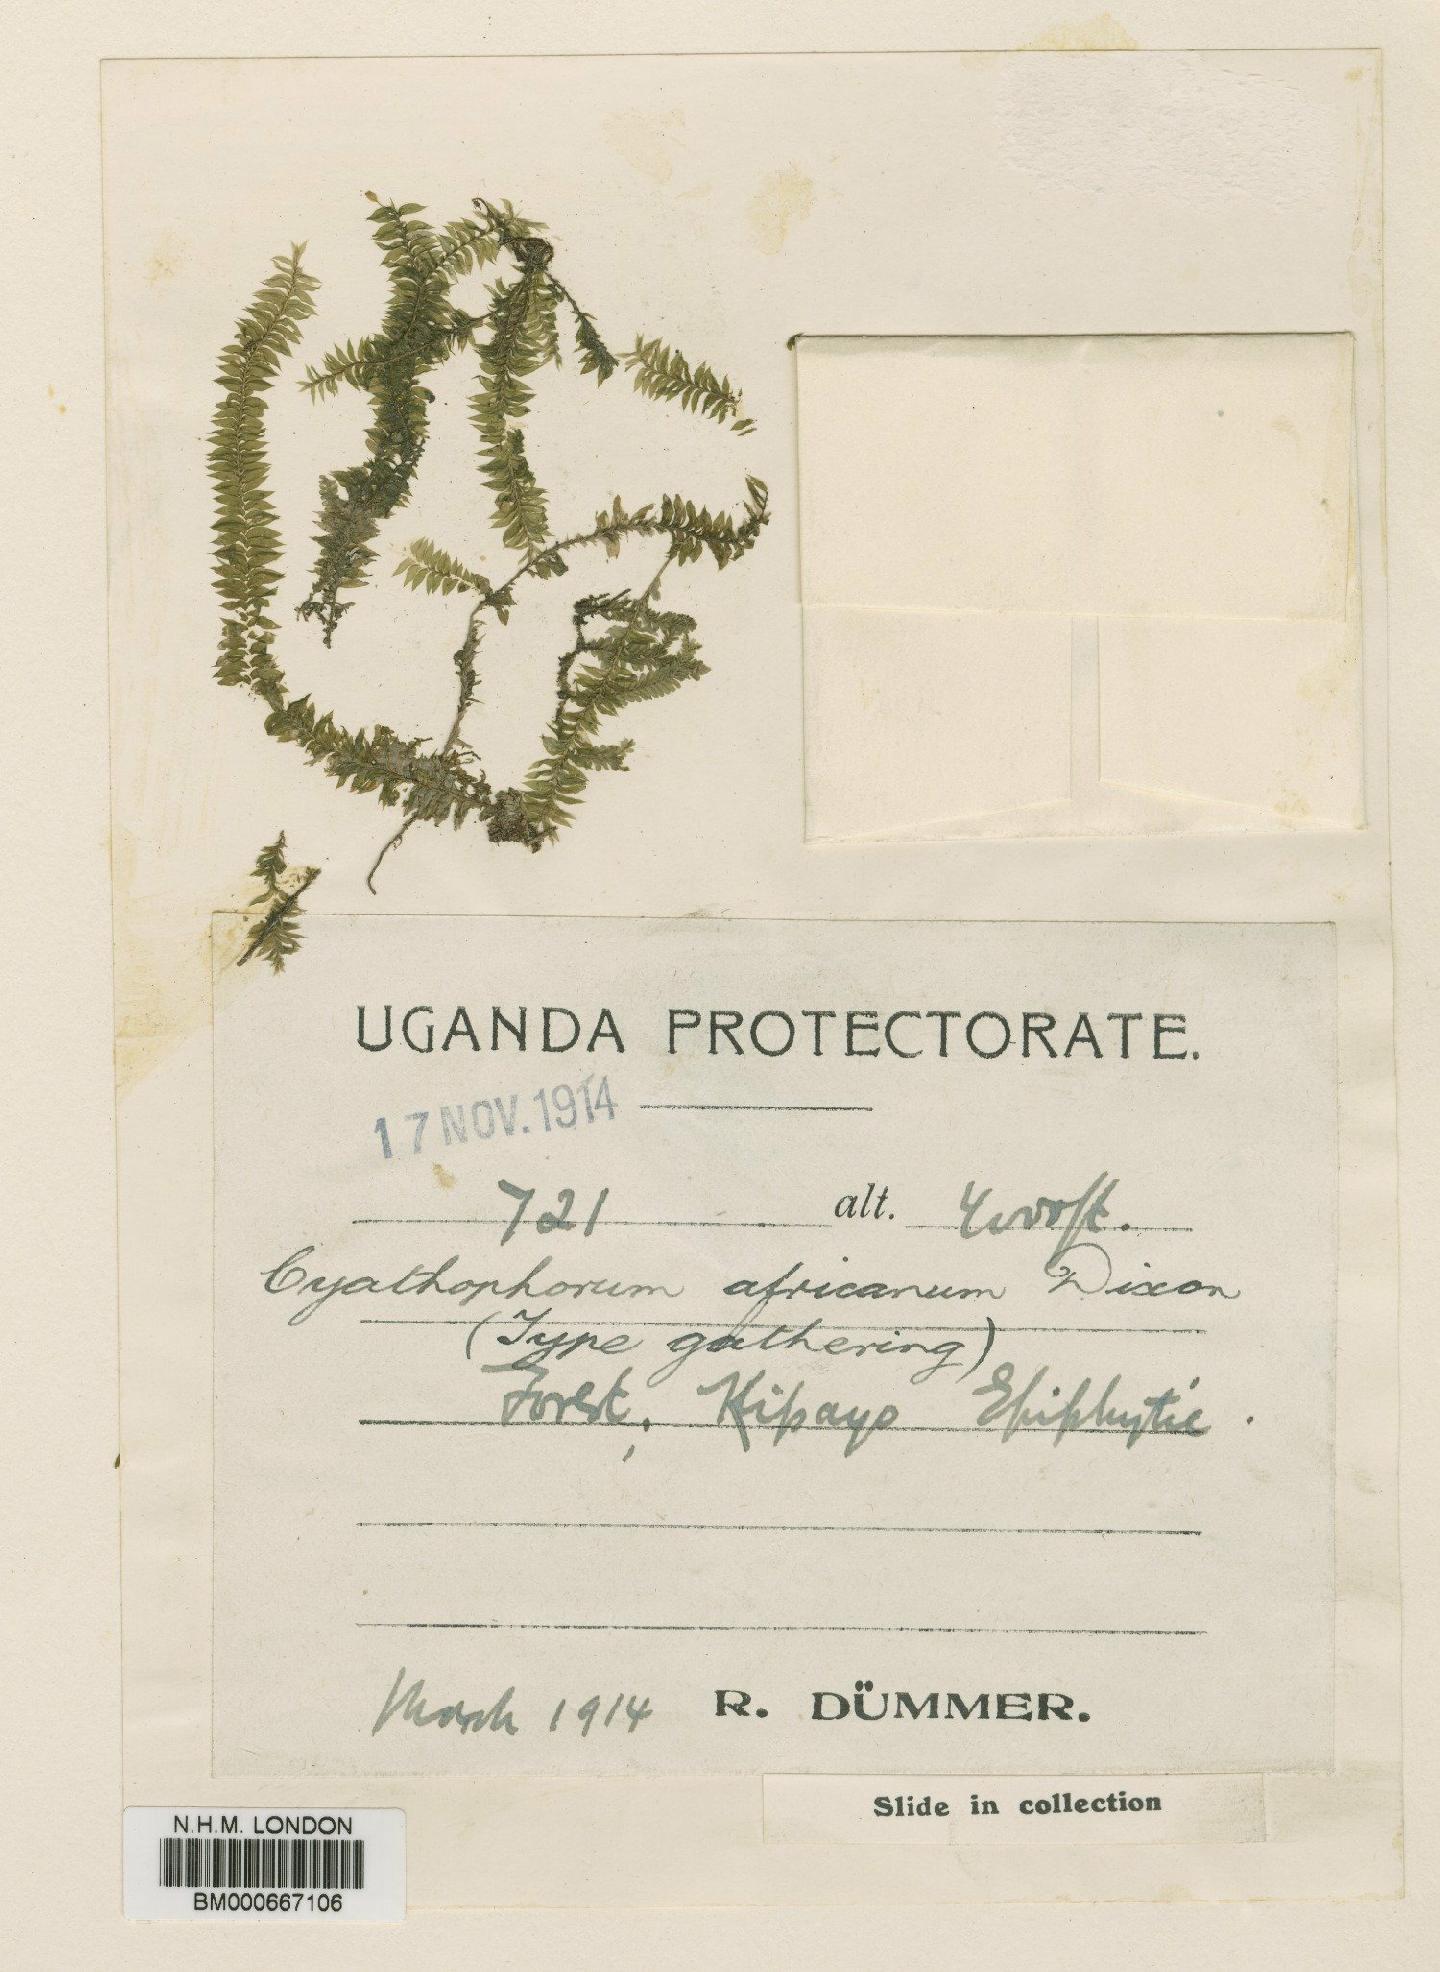 UGANDA PROTECTORATE.
17 NOV. 1914
721 alt. 4000ft.
Cyathophorum africanum Dixon
(Type gathering)
Forest, Kipayo Epiphytic.
March 1914 R. DÜMMER.
Slide in collection
N.H.M. LONDON
BM000667106